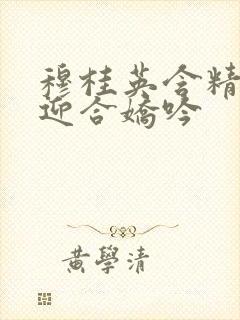 穆桂英含精
迎合嬌吟
黄學清